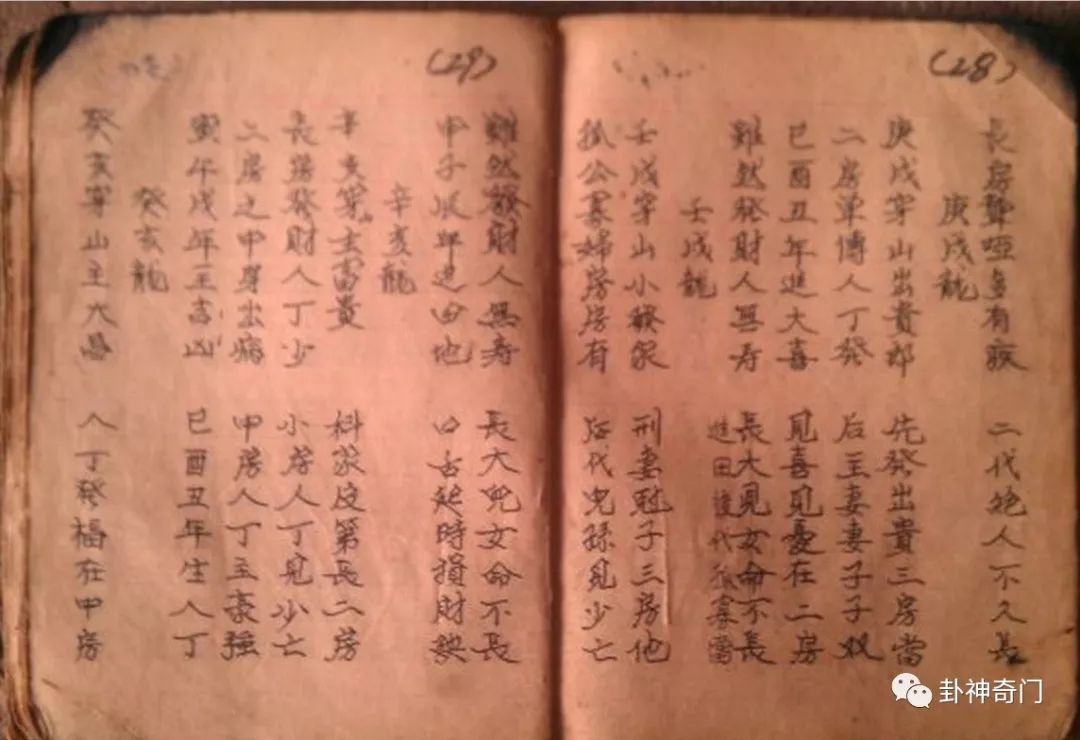 (28)
長房聾啞多有疾 二代绝人不久長
庚戌龍
庚戌穿山出貴郎 先發出貴三房當
二房单傳人丁發 后主妻妻子子双
巳酉丑年進大喜 見喜見憂在二房
雖然發財人無寿 長大見女命不長
進田後代孤寡當
壬戌龍
壬戌穿山小發家 刑妻尅子三房他
孤公寡婦房房有 后代兒孫見少亡
(29)
雖然發財人無寿 長大兒女命不長
甲子辰年進田地 口舌起時損財
辛亥龍
辛亥穿山主富貴 科家及第長二房
長房發財人丁少 小房人丁見少亡
二房之中身出痨 中房人丁主豪强
寅午戌年主吉凶 巳酉丑年生人丁
癸亥龍
癸亥穿山主大昌 人丁發福在中房
卦神奇门